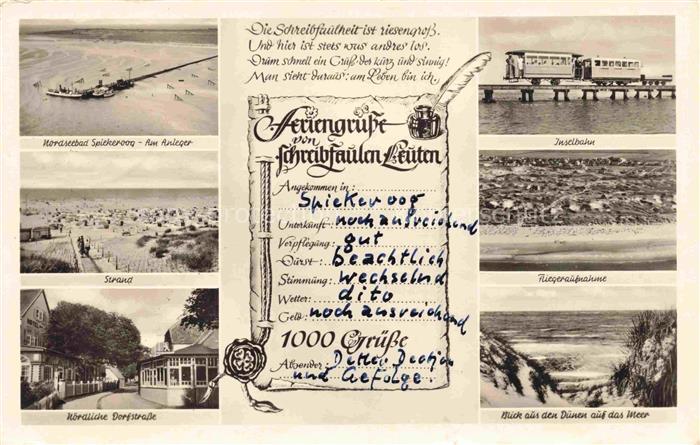 Die Schreibfaulheit ist riesengroß.
Und hier ist stets was andres los.
Drum schnell ein Gruß, des kurz und sinnig!
Man sieht daraus: am Leben bin ich.
Feriengrüße
von
schreibfaulen Leuten
Angekommen in: Spiekeroog
Unterkunft: noch ausreichend
Verpflegung: gut
Durst: beachtlich
Stimmung: wechselnd
Wetter: dito
Geld: noch ausreichend
1000 Grüße
Absender: Detlev
und Gefolge.
Nordseebad Spiekeroog - Am Anleger
Strand
Nördliche Dorfstraße
Inselbahn
Fliegeraufnahme
Blick aus den Dünen auf das Meer